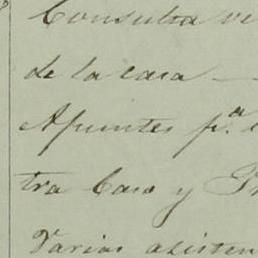 Consulta ve
de la casa —
Apuntes p.ª
tra Caso y
Varias asisten